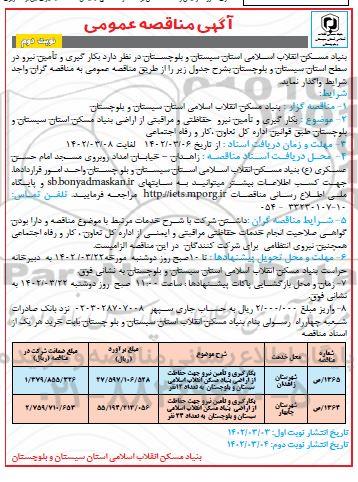 آگهی مناقصه عمومی
نوبت دوم
بنیاد مسکن انقلاب اسلامی استان سیستان و بلوچستان در نظر دارد بکار گیری و تأمین نیرو در
سطح استان سیستان و بلوچستان بشرح جدول زیر را از طریق مناقصه عمومی به مناقصه گران واجد
شرایط واگذار نماید.
شرایط:
۱- مناقصه گزار : بنیاد مسکن انقلاب اسلامی استان سیستان و بلوچستان
۲- موضوع : بکار گیری و تأمین نیرو حفاظتی و مراقبتی از اراضی بنیاد مسکن استان سیستان و
بلوچستان طبق قوانین اداره کل تعاون ،کار و رفاه اجتماعی
۳- مهلت و زمان دریافت اسناد : از تاریخ ۱۴۰۲/۰۳/۰۶ لغایت ۱۴۰۲/۰۳/۰۸
۴- محل دریافت اسناد مناقصه : زاهدان - خیابان امداد روبروی مسجد امام حسن
عسکری (ع) بنیاد مسکن انقلاب اسلامی استان سیستان و بلوچستان واحد امور قراردادها.
جهت کسب اطلاعات بیشتر میتوانید به سایتهای sb.bonyadmaskan.ir و پایگاه
ملی اطلاع رسانی مناقصات http://iets.mporg.ir مراجعه فرمایید. تلفن تماس:
۰۵۴ - ۳۳۲۳۰۱۰۷-۱۰
۵- شرایط مناقصه گران :داشتن شرکت با شرح خدمات مرتبط با موضوع مناقصه و دارا بودن
گواهی صلاحیت انجام خدمات حفاظتی مراقبتی و ایمنی از اداره کل تعاون ، کار و رفاه اجتماعی
همچنین نیروی انتظامی برای شرکت کنندگان در این مناقصه الزامیست.
۶- مهلت و محل تحویل پیشنهادها : تا ۱۰صبح روز دوشنبه مورخه۱۴۰۲/۰۳/۲۲ به دبیرخانه
حراست بنیاد مسکن انقلاب اسلامی استان سیستان و بلوچستان به نشانی فوق
۷- زمان و محل بازگشایی پاکات پیشنهادها : ساعت ۱۱:۰۰ صبح روز دوشنبه ۱۴۰۲/۰۳/۲۲ به
نشانی فوق
۸- واریز مبلغ ۲/۰۰۰/۰۰۰ ریال به حساب جاری سپهر نزد بانک صادرات
شعبه چهارراه رسولی بنام بنیاد مسکن انقلاب اسلامی استان سیستان و بلوچستان بابت خرید هر یک از
اسناد مناقصه
شماره مناقصه | محل خدمت | شرح موضوع | مبلغ برآورد (ریال) | مبلغ ضمانت شرکت در مناقصه (ریال)
۱۳۶۵/ص | شهرستان زاهدان | بکارگیری و تأمین نیرو جهت حفاظت از اراضی بنیاد مسکن انقلاب اسلامی استان سیستان و بلوچستان به تعداد ۱۲نفر | ۲۷/۵۹۷/۱۰۶/۵۲۸ | ۱/۳۷۹/۸۵۵/۳۲۶
۱۳۶۴/ص | شهرستان چابهار | بکارگیری و تأمین نیرو جهت حفاظت از اراضی بنیاد مسکن انقلاب اسلامی استان سیستان و بلوچستان به تعداد ۲۴ نفر | ۵۵/۱۹۴/۲۱۳/۰۵۶ | ۲/۷۵۹/۷۱۰/۶۵۳
تاریخ انتشار نوبت اول: ۱۴۰۲/۰۳/۰۳
تاریخ انتشار نوبت دوم: ۱۴۰۲/۰۳/۰۴
بنیاد مسکن انقلاب اسلامی استان سیستان و بلوچستان